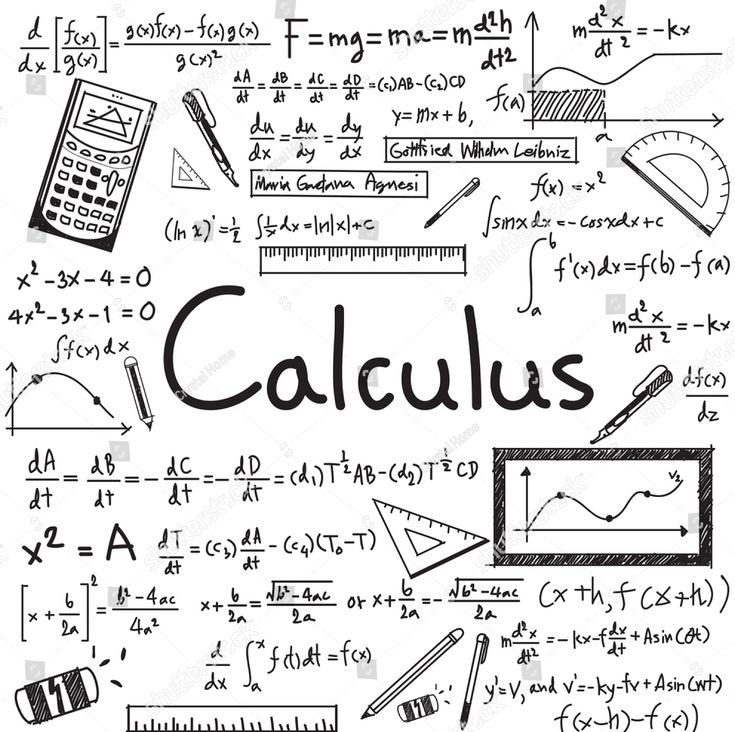 d/dx [f(x)/g(x)] = g(x)f(x) - f(x)g(x) / g(x)²
F = mg = ma = m d²h/dt²
m d²x/dt² = -kx
dA/dt = dB/dt = dC/dt = dD/dt = (c₁)AB-(c₂)CD
f(a)
a
du/dx = du/dy = dy/dx
y = mx + b,
Gottfried Wilhelm Leibniz
Maria Gaetana Agnesi
f(x) = x²
(ln x)' = 1/2
∫ 1/x dx = ln|x| + c
∫ sinx dx = - cosxdx + c
∫ₐᵇ f'(x)dx = f(b) - f(a)
x² - 3x - 4 = 0
4x² - 3x - 1 = 0
∫f(x)dx
Calculus
m d²x/dt² = -kx
df(x)/dz
dA/dt = dB/dt = - dC/dt = - dD/dt = (d₁)T^½ AB - (d₂)T^½ CD
V₂
x² = A
dT/dt = (c₃) dA/dt - (c₄)(T₀ - T)
[x + b/2a]² = b² - 4ac / 4a²
x + b/2a = √b² - 4ac / 2a or x + b/2a = - √b² - 4ac / 2a
(x+h, f(x+h))
d/dx ∫ₐˣ f(t)dt = f(x)
m d²x/dt² = -kx - f dx/dt + Asin(ωt)
y' = v, and v' = -ky - fv + Asin(wt)
f(x-h) - f(x))
shutterstock
Crystal Home